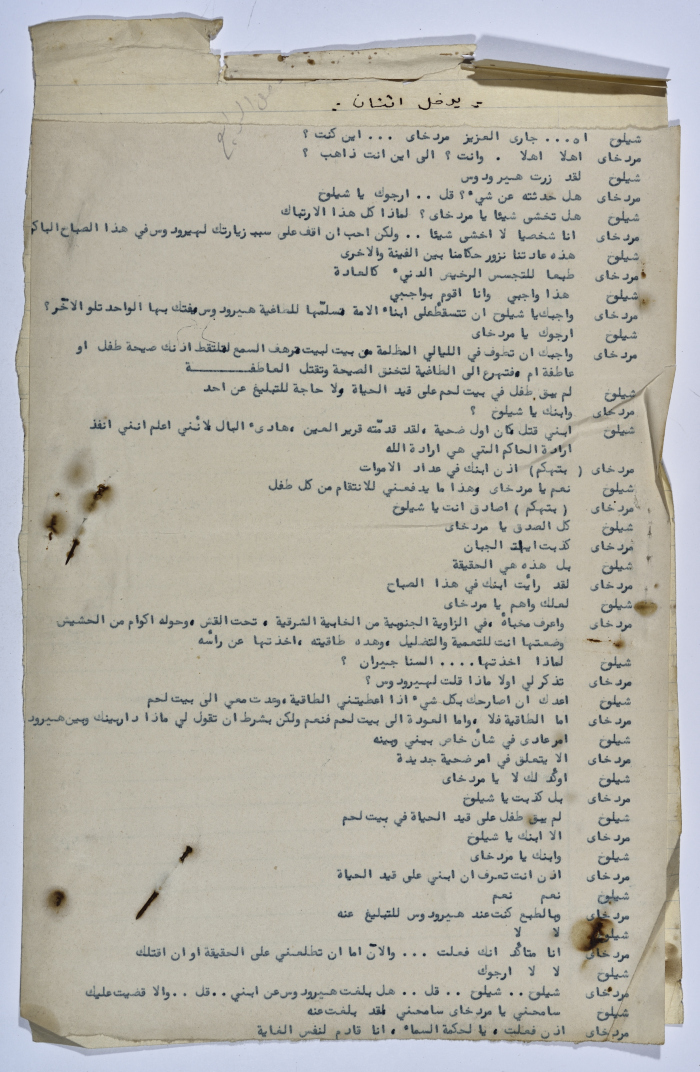 - يدخل اثنان -
شيلوخ اه... جارى العزيز مردخاى ... اين كنت ؟
مردخاى اهلا اهلا . وانت ؟ الى اين انت ذاهب ؟
شيلوخ لقد زرت هيرودوس
مردخاى هل حدثته عن شيء ؟ قل .. ارجوك يا شيلوخ
شيلوخ هل تخشى شيئا يا مردخاى ؟ لماذا كل هذا الارتباك
مردخاى انا شخصيا لا اخشى شيئا .. ولكن احب ان اقف على سبب زيارتك لهيرودوس في هذا الصباح الباكر
شيلوخ هذه عادتنا نزور حكامنا بين الفينة والاخرى
مردخاى طبعا للتجسس الرخيص الدنيء كالعادة
شيلوخ هذا واجبي وانا اقوم بواجبي
مردخاى واجبك يا شيلوخ ان تتسقط على ابناء الامة تسلمها للطاغية هيرودوس يفتك بها الواحد تلو الآخر ؟
شيلوخ ارجوك يا مردخاى
مردخاى واجبك ان تطوف في الليالي المظلمة من بيت لبيت ترهف السمع لتلتقط اذنك صيحة طفل او
عاطفة ام ، فتهرع الى الطاغية لتخنق الصيحة وتقتل العاطفــــــــة
شيلوخ لم يبق طفل في بيت لحم على قيد الحياة ولا حاجة للتبليغ عن احد
مردخاى وابنك يا شيلوخ ؟
شيلوخ ابني قتل كان اول ضحية ، لقد قدمّته قرير العين ، هادىء البال لأنني اعلم انني انفذ
ارادة الحاكم التي هي ارادة الله
مردخاى ( بتهكم ) اذن ابنك في عداد الاموات
شيلوخ نعم يا مردخاى وهذا ما يدفعني للانتقام من كل طفل
مردخاى ( بتهكم ) اصادق انت يا شيلوخ
شيلوخ كل الصدق يا مردخاى
مردخاى كذبت ايها الجبان
شيلوخ بل هذه هي الحقيقة
مردخاى لقد رأيت ابنك في هذا الصباح
شيلوخ لعلك واهم يا مردخاى
مردخاى واعرف مخبأه ، في الزاوية الجنوبية من الخابية الشرقية ، تحت القش ، وحوله اكوام من الحشيش
وضعتها انت للتعمية والتضليل ، وهذه طاقيته ، اخذتها عن رأسه
شيلوخ لماذا اخذتها .... السنا جيران ؟
مردخاى تذكر لي اولا ماذا قلت لهيرودوس ؟
شيلوخ اعدك ان اصارحك بكل شيء اذا اعطيتني الطاقية ، وعدت معي الى بيت لحم
مردخاى اما الطاقية فلا ، واما العودة الى بيت لحم فنعم ولكن بشرط ان تقول لي ماذا دار بينك وبين هيرود
شيلوخ امر عادى في شأن خاص بيني وبينه
مردخاى الا يتعلق في امر ضحية جديدة
شيلوخ اوكد لك لا يا مردخاى
مردخاى بل كذبت يا شيلوخ
شيلوخ لم يبق طفل على قيد الحياة في بيت لحم
مردخاى الا ابنك يا شيلوخ
شيلوخ وابنك يا مردخاى
مردخاى اذن انت تعرف ان ابني على قيد الحياة
شيلوخ نعم نعم
مردخاى وبالطبع كنت عند هيرودوس للتبليغ عنه
شيلوخ لا لا
مردخاى انا متأكد انك فعلت ... والآن اما ان تطلعني على الحقيقة او ان اقتلك
شيلوخ لا لا ارجوك
مردخاى شيلوخ .. شيلوخ .. قل .. هل بلغت هيرودوس عن ابني .. قل .. والا قضيت عليك
شيلوخ سامحني يا مردخاى سامحني لقد بلغت عنه
مردخاى اذن فعلت ، يا لحكمة السماء ، انا قادم لنفس الغاية